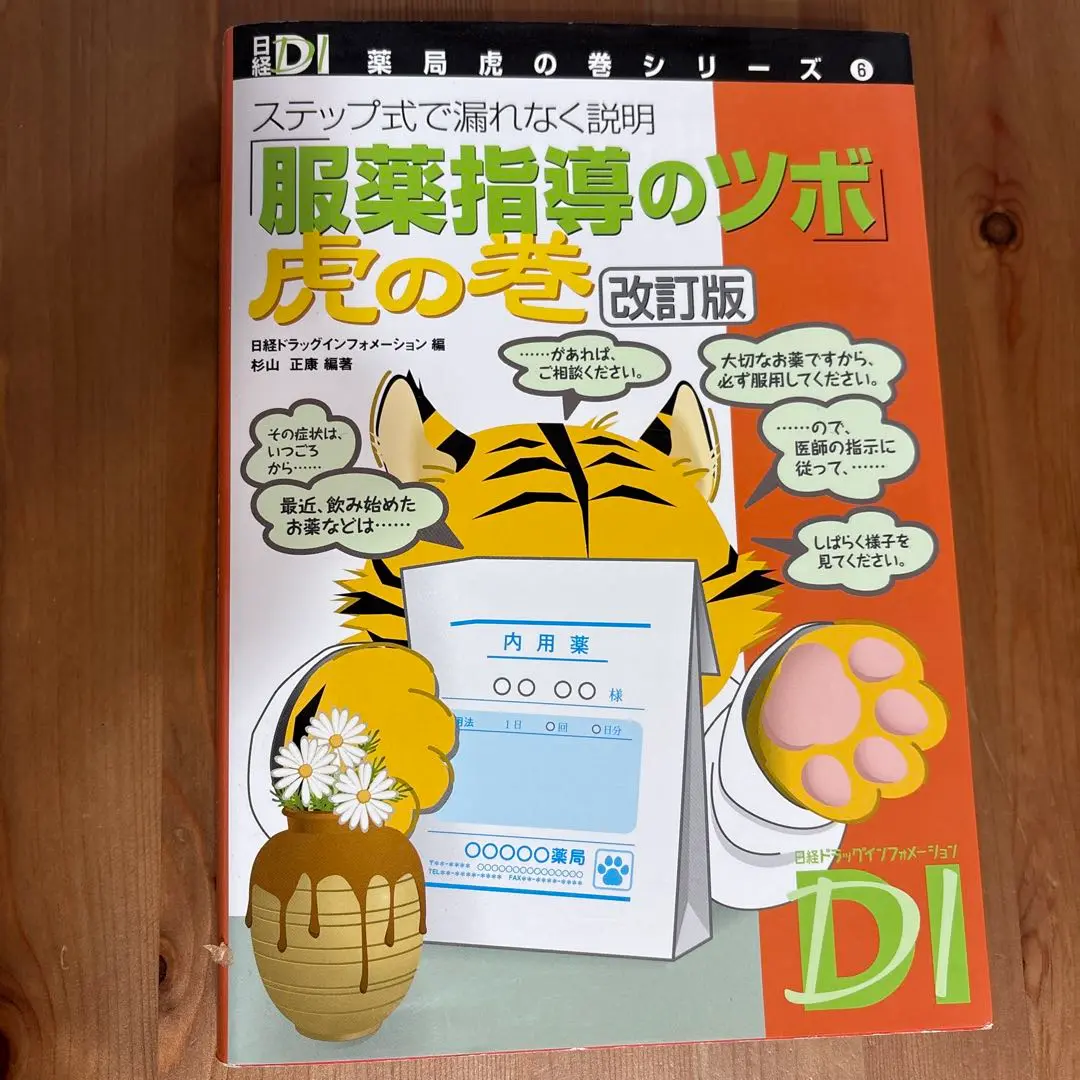 日経DI 薬局虎の巻シリーズ❻
ステップ式で漏れなく説明
「服薬指導のツボ」
虎の巻 改訂版
日経ドラッグインフォメーション 編
杉山 正康 編著
……があれば、
ご相談ください。
大切なお薬ですから、
必ず服用してください。
その症状は、
いつごろ
から……
……ので、
医師の指示に
従って、……
最近、飲み始めた
お薬などは……
しばらく様子を
見てください。
内用薬
○○ ○○ 様
用法 1日 ○回 ○日分
○○○○○薬局
〒**-**** ○○○○○○○○○○○○○○
TEL**-****-**** FAX**-****-****
日経ドラッグインフォメーション
DI